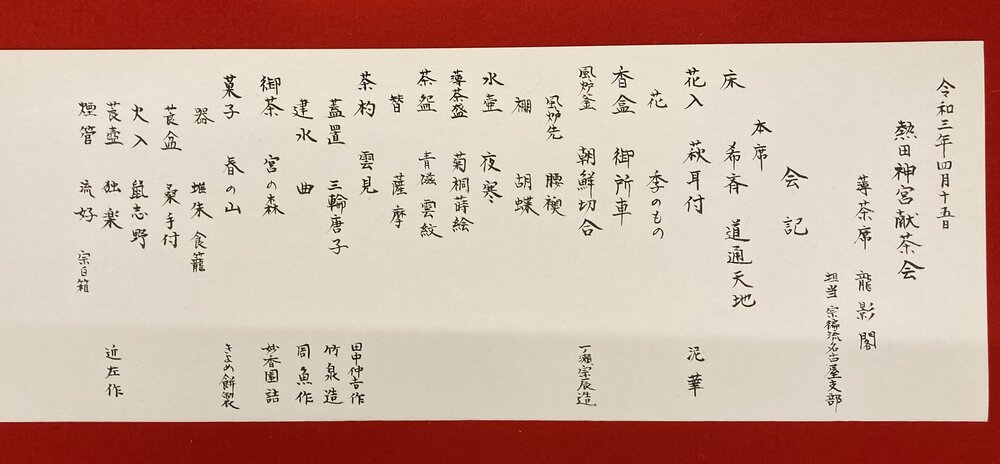 令和三年四月十五日
熱田神宮献茶会
薄茶席 龍影閣
担当 宗徧流名古屋支部
会記
本席
床 希斎 道通天地
花入 萩耳付 泥華
花 季のもの
香盒 御所車
風炉釜 朝鮮切合 一ノ瀬宗辰造
風炉先 腰襖
棚 胡蝶
水壷 夜寒
薄茶盛 菊桐蒔絵
茶盌 青磁 雲紋
替 薩摩
茶杓 雲見 田中仲吉作
蓋置 三輪唐子 竹泉造
建水 曲 周魚作
御茶 宮の森 妙香園詰
菓子 春の山 きよめ餅製
器 堆朱 食籠
莨盆 桑手付
火入 鼠志野
莨壷 独楽 近左作
煙管 流好 宗白箱